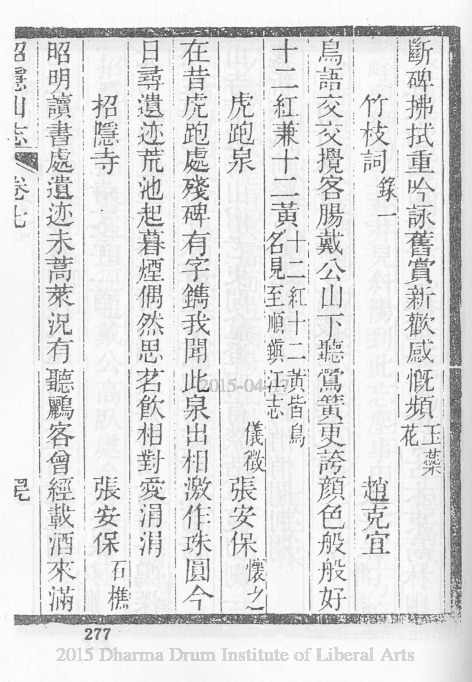 斷碑拂拭重吟詠舊賞新歡感慨頻玉蘂花
竹枝詞錄一 趙克宜
鳥語交交攪客腸戴公山下聽鶯簧更誇顏色般般好
十二紅兼十二黃十二紅十二黃皆鳥名見至順鎮江志
虎跑泉 儀徵張安保懷之
在昔虎跑處殘碑有字鐫我聞此泉出相激作珠圓今
日尋遺迹荒池起暮煙偶然思茗飲相對愛涓涓
招隱寺 張安保石樵
昭明讀書處遺迹未蒿萊況有聽鸝客曾經載酒來滿
招隱山志 卷七
277
2015-04-17
2015 Dharma Drum Institute of Liberal Arts